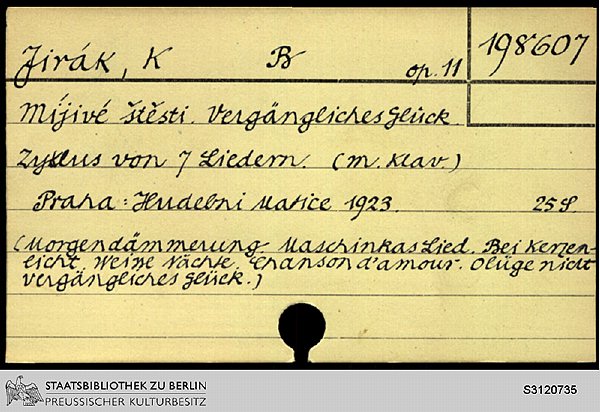 Jirák, K B op. 11 198607
Míjivé štěsti. Vergängliches Glück
Zyklus von 7 Liedern. (m. Klav.)
Praha: Hudebni Matice 1923. 25 S.
(Morgendämmerung. Maschinkas Lied. Bei Kerzen-
licht. Weiße Nächte. Chanson d'amour. O lüge nicht
Vergängliches Glück.)
STAATSBIBLIOTHEK ZU BERLIN
PREUSSISCHER KULTURBESITZ
S3120735